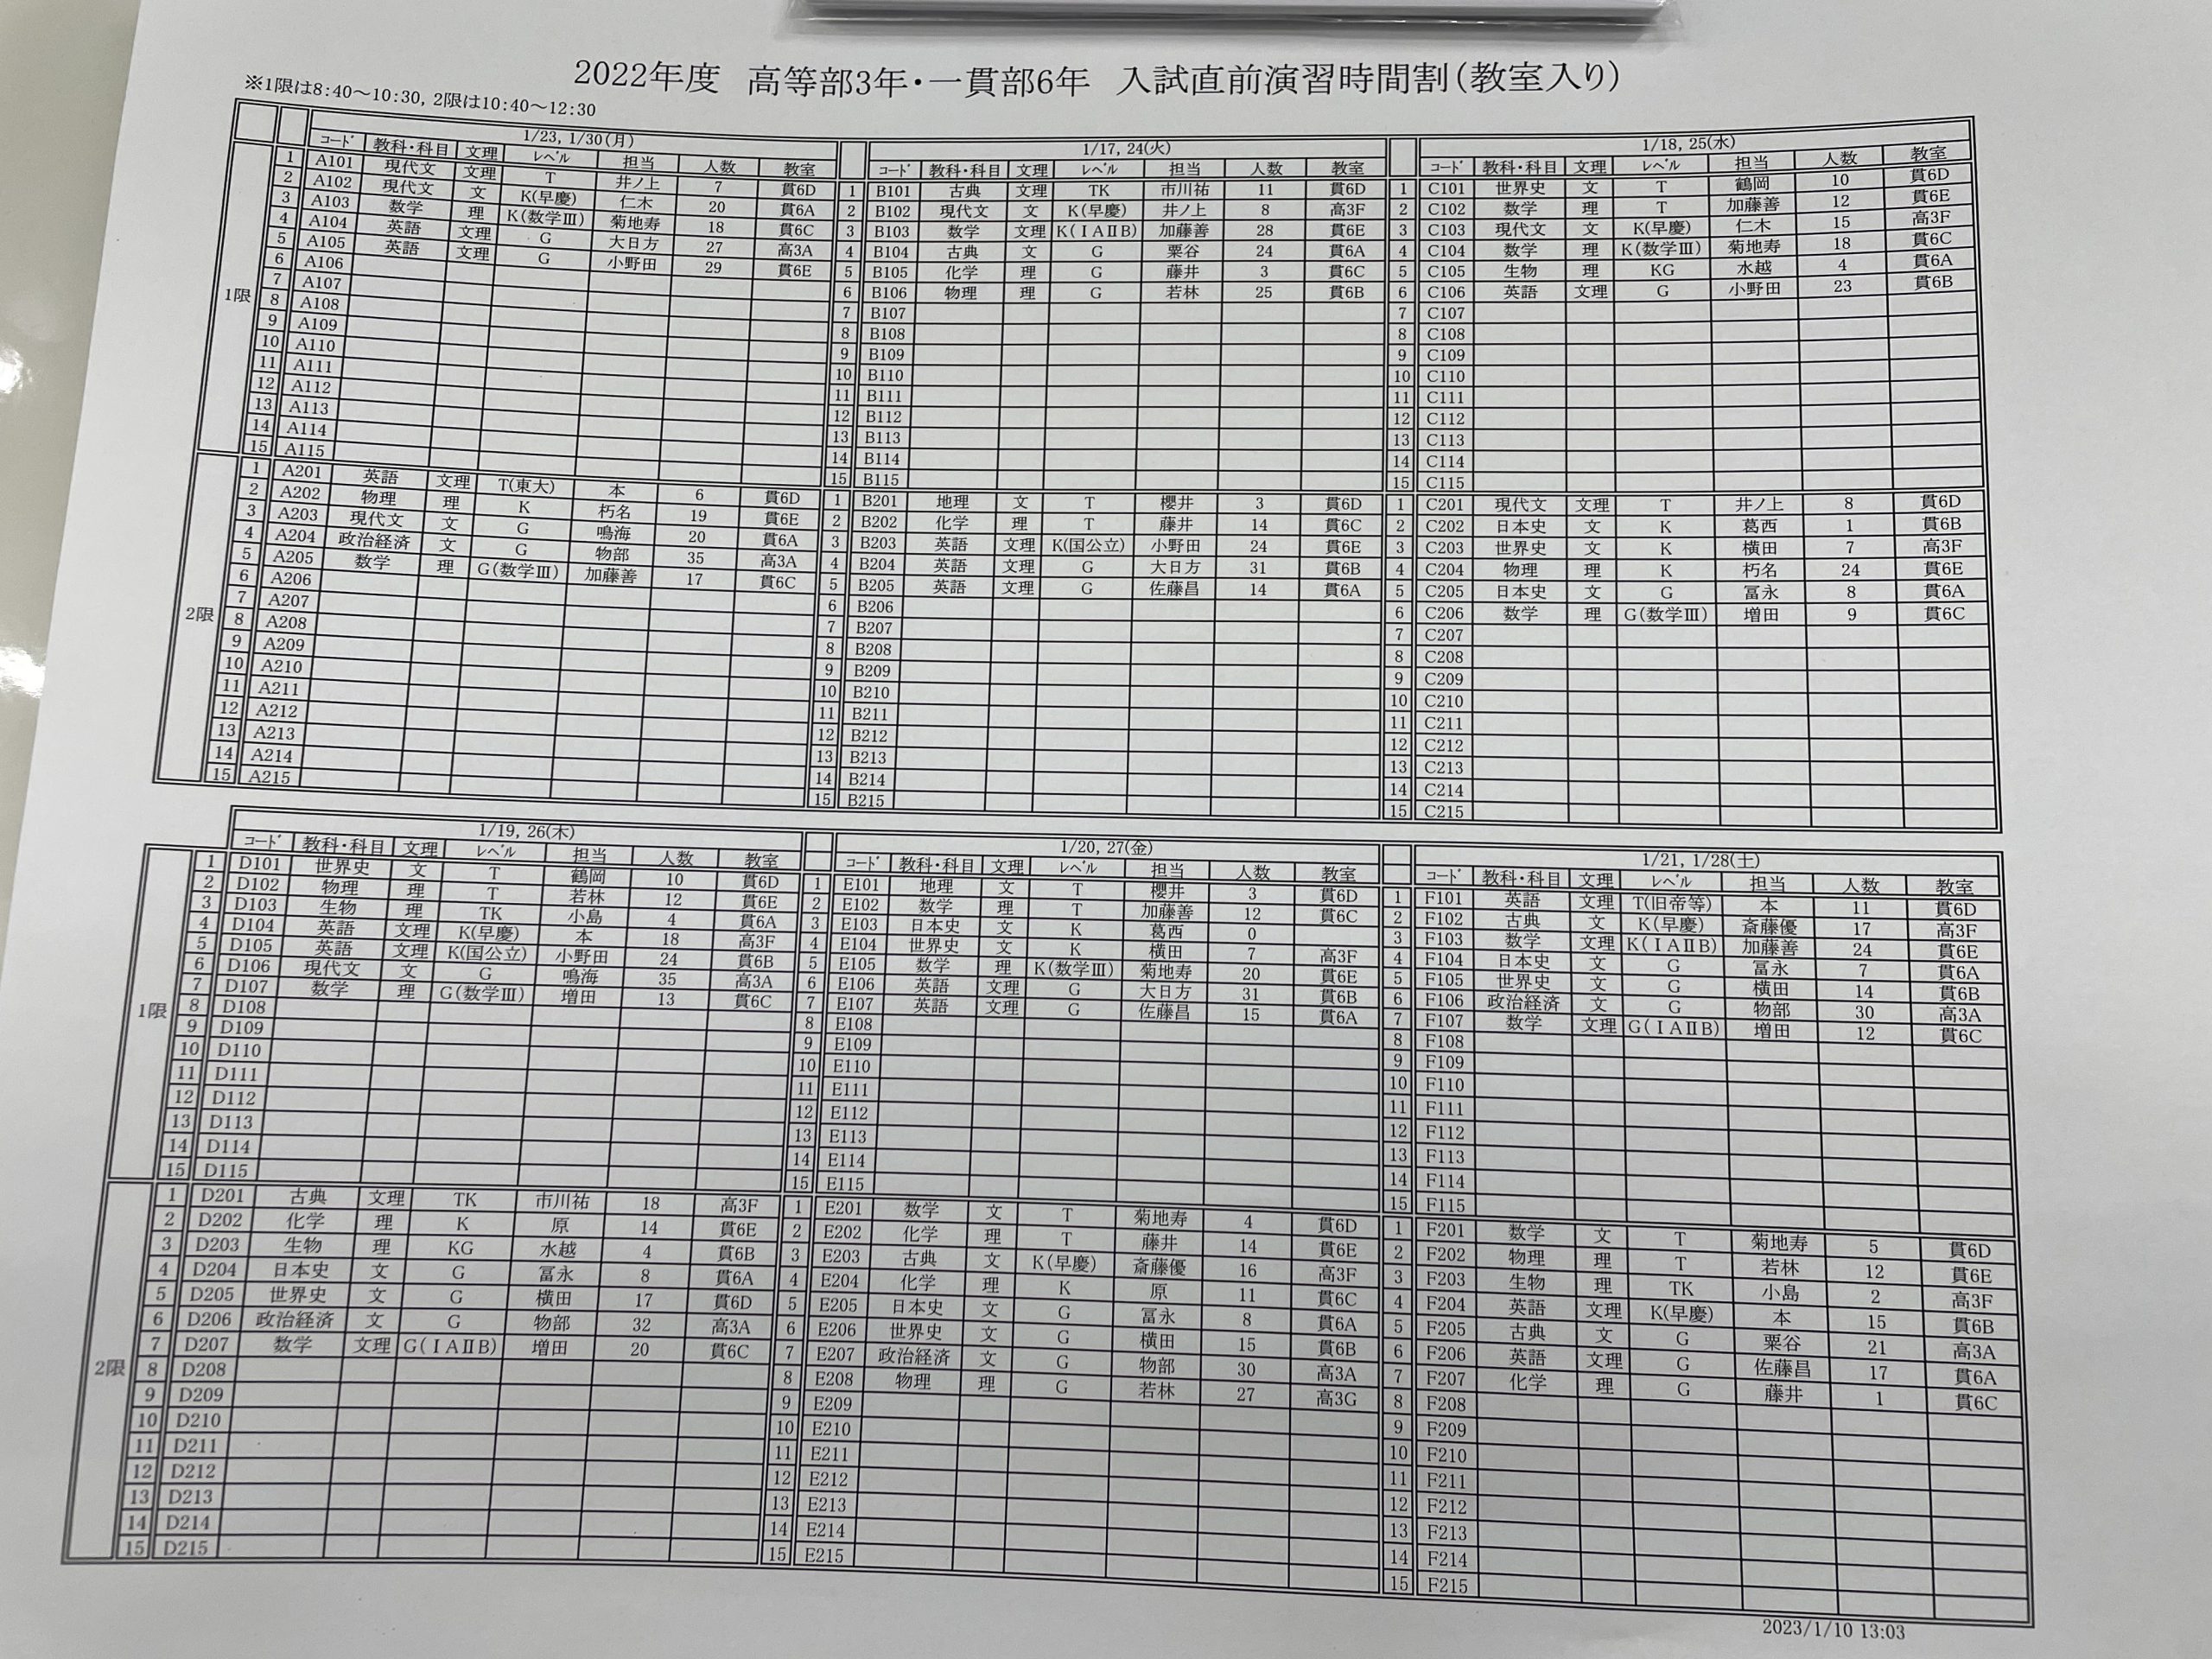 2022年度　高等部3年・一貫部6年　入試直前演習時間割(教室入り)
※1限は8:40～10:30, 2限は10:40～12:30
1/23, 1/30(月)
コード 教科・科目 文理 レベル 担当 人数 教室
1限
1 A101 現代文 文理 T 井ノ上 7 貫6D
2 A102 現代文 文 K(早慶) 仁木 20 貫6A
3 A103 数学 理 K(数学Ⅲ) 菊地寿 18 貫6C
4 A104 英語 文理 G 大日方 27 高3A
5 A105 英語 文理 G 小野田 29 貫6E
6 A106
7 A107
8 A108
9 A109
10 A110
11 A111
12 A112
13 A113
14 A114
15 A115
2限
1 A201 英語 文理 T(東大) 本 6 貫6D
2 A202 物理 理 K 朽名 19 貫6E
3 A203 現代文 文 G 鳴海 20 貫6A
4 A204 政治経済 文 G 物部 35 高3A
5 A205 数学 理 G(数学Ⅲ) 加藤善 17 貫6C
6 A206
7 A207
8 A208
9 A209
10 A210
11 A211
12 A212
13 A213
14 A214
15 A215
1/17, 24(火)
コード 教科・科目 文理 レベル 担当 人数 教室
1 B101 古典 文理 TK 市川祐 11 貫6D
2 B102 現代文 文 K(早慶) 井ノ上 8 高3F
3 B103 数学 文理 K(ⅠAⅡB) 加藤善 28 貫6E
4 B104 古典 文 G 粟谷 24 貫6A
5 B105 化学 理 G 藤井 3 貫6C
6 B106 物理 理 G 若林 25 貫6B
7 B107
8 B108
9 B109
10 B110
11 B111
12 B112
13 B113
14 B114
15 B115
1 B201 地理 文 T 櫻井 3 貫6D
2 B202 化学 理 T 藤井 14 貫6C
3 B203 英語 文理 K(国公立) 小野田 24 貫6E
4 B204 英語 文理 G 大日方 31 貫6B
5 B205 英語 文理 G 佐藤昌 14 貫6A
6 B206
7 B207
8 B208
9 B209
10 B210
11 B211
12 B212
13 B213
14 B214
15 B215
1/18, 25(水)
コード 教科・科目 文理 レベル 担当 人数 教室
1 C101 世界史 文 T 鶴岡 10 貫6D
2 C102 数学 理 T 加藤善 12 貫6E
3 C103 現代文 文 K(早慶) 仁木 15 高3F
4 C104 数学 理 K(数学Ⅲ) 菊地寿 18 貫6C
5 C105 生物 理 KG 水越 4 貫6A
6 C106 英語 文理 G 小野田 23 貫6B
7 C107
8 C108
9 C109
10 C110
11 C111
12 C112
13 C113
14 C114
15 C115
1 C201 現代文 文理 T 井ノ上 8 貫6D
2 C202 日本史 文 K 葛西 1 貫6B
3 C203 世界史 文 K 横田 7 高3F
4 C204 物理 理 K 朽名 24 貫6E
5 C205 日本史 文 G 冨永 8 貫6A
6 C206 数学 理 G(数学Ⅲ) 増田 9 貫6C
7 C207
8 C208
9 C209
10 C210
11 C211
12 C212
13 C213
14 C214
15 C215
1/19, 26(木)
コード 教科・科目 文理 レベル 担当 人数 教室
1限
1 D101 世界史 文 T 鶴岡 10 貫6D
2 D102 物理 理 T 若林 12 貫6E
3 D103 生物 理 TK 小島 4 貫6A
4 D104 英語 文理 K(早慶) 本 18 高3F
5 D105 英語 文理 K(国公立) 小野田 24 貫6B
6 D106 現代文 文 G 鳴海 35 高3A
7 D107 数学 理 G(数学Ⅲ) 増田 13 貫6C
8 D108
9 D109
10 D110
11 D111
12 D112
13 D113
14 D114
15 D115
2限
1 D201 古典 文理 TK 市川祐 18 高3F
2 D202 化学 理 K 原 14 貫6E
3 D203 生物 理 KG 水越 4 貫6B
4 D204 日本史 文 G 冨永 8 貫6A
5 D205 世界史 文 G 横田 17 貫6D
6 D206 政治経済 文 G 物部 32 高3A
7 D207 数学 文理 G(ⅠAⅡB) 増田 20 貫6C
8 D208
9 D209
10 D210
11 D211
12 D212
13 D213
14 D214
15 D215
1/20, 27(金)
コード 教科・科目 文理 レベル 担当 人数 教室
1 E101 地理 文 T 櫻井 3 貫6D
2 E102 数学 理 T 加藤善 12 貫6C
3 E103 日本史 文 K 葛西 0
4 E104 世界史 文 K 横田 7 高3F
5 E105 数学 理 K(数学Ⅲ) 菊地寿 20 貫6E
6 E106 英語 文理 G 大日方 31 貫6B
7 E107 英語 文理 G 佐藤昌 15 貫6A
8 E108
9 E109
10 E110
11 E111
12 E112
13 E113
14 E114
15 E115
1 E201 数学 文 T 菊地寿 4 貫6D
2 E202 化学 理 T 藤井 14 貫6E
3 E203 古典 文 K(早慶) 斎藤優 16 高3F
4 E204 化学 理 K 原 11 貫6C
5 E205 日本史 文 G 冨永 8 貫6A
6 E206 世界史 文 G 横田 15 貫6B
7 E207 政治経済 文 G 物部 30 高3A
8 E208 物理 理 G 若林 27 高3G
9 E209
10 E210
11 E211
12 E212
13 E213
14 E214
15 E215
1/21, 1/28(土)
コード 教科・科目 文理 レベル 担当 人数 教室
1 F101 英語 文理 T(旧帝等) 本 11 貫6D
2 F102 古典 文 K(早慶) 斎藤優 17 高3F
3 F103 数学 文理 K(ⅠAⅡB) 加藤善 24 貫6E
4 F104 日本史 文 G 冨永 7 貫6A
5 F105 世界史 文 G 横田 14 貫6B
6 F106 政治経済 文 G 物部 30 高3A
7 F107 数学 文理 G(ⅠAⅡB) 増田 12 貫6C
8 F108
9 F109
10 F110
11 F111
12 F112
13 F113
14 F114
15 F115
1 F201 数学 文 T 菊地寿 5 貫6D
2 F202 物理 理 T 若林 12 貫6E
3 F203 生物 理 TK 小島 2 高3F
4 F204 英語 文理 K(早慶) 本 15 貫6B
5 F205 古典 文 G 粟谷 21 高3A
6 F206 英語 文理 G 佐藤昌 17 貫6A
7 F207 化学 理 G 藤井 1 貫6C
8 F208
9 F209
10 F210
11 F211
12 F212
13 F213
14 F214
15 F215
2023/1/10 13:03